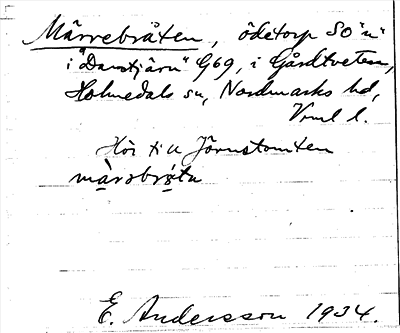 Märrebråten, ödetorp SO "n"
i "Damtjärn" G69, i Gårdtveten,
Holmedals sn, Nordmarks hd,
Vrml l.
Hör till Järnstomten
màrəbrǫ́tn
E. Andersson 1934.